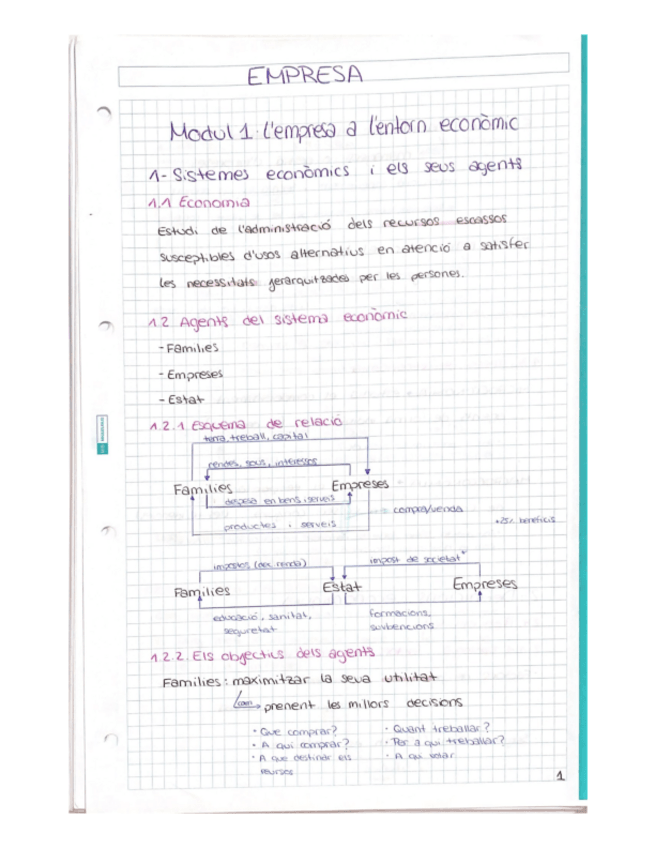 EMPRESA
Modul 1. L'empresa a l'entorn econòmic
1- Sistemes econòmics i els seus agents
1.1 Economia
Estudi de l'administració dels recursos escassos
susceptibles d'usos alternatius en atenció a satisfer
les necessitats jerarquitzades per les persones.
1.2. Agents del sistema econòmic
- Famílies
- Empreses
- Estat
1.2.1 Esquema de relació
terra, treball, capital
rendes, sous, interessos
Famílies
Empreses
despesa en bens i serveis
compra/venda
productes i serveis
*25% beneficis
impostos (ex. renda)
impost de societat*
Famílies
Estat
Empreses
educació, sanitat,
seguretat
formacions,
subvencions
1.2.2. Els objectius dels agents
Famílies: maximitzar la seva utilitat
com prenent les millors decisions
· Que comprar?
· Quant treballar?
· A qui comprar?
· Per a qui treballar?
· A que destinar els
recursos
· A qui votar
1